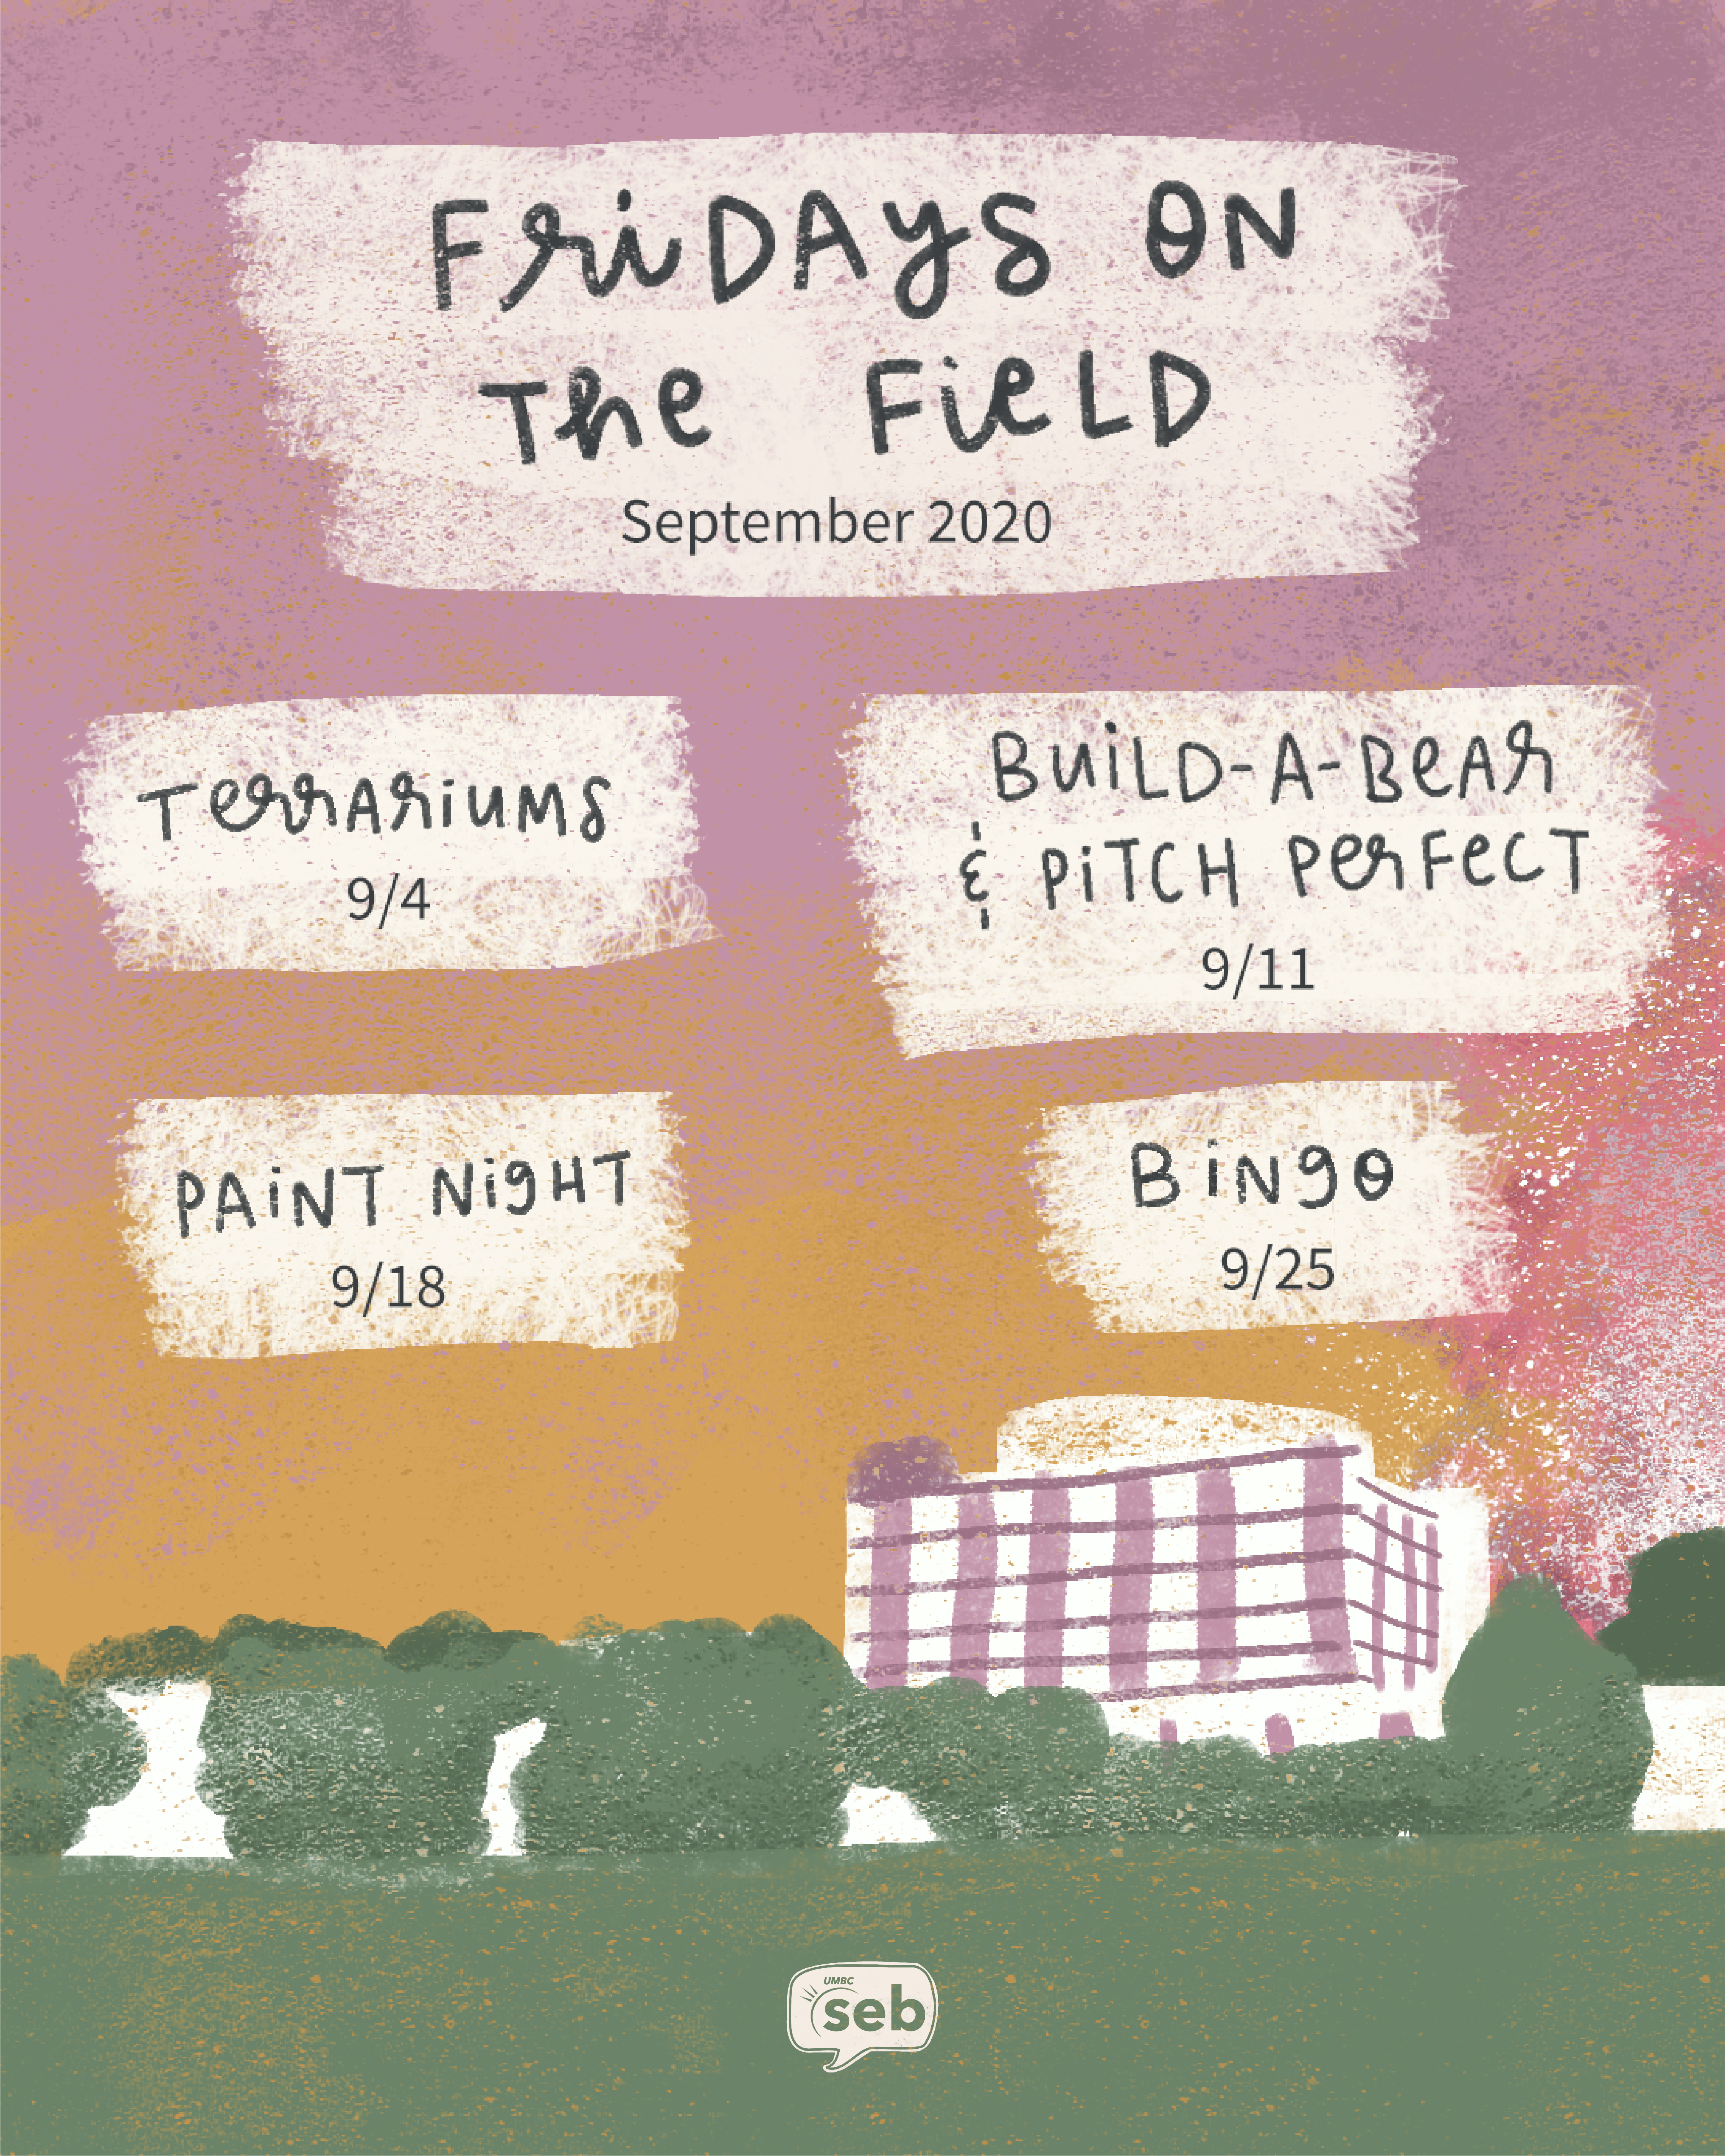 FRiDAYS ON
THe FieLD
September 2020
TerrARiUMS
9/4
BuiLD-A-BeAR
& PiTCH PerFeCT
9/11
PAiNT NigHT
9/18
BiNgO
9/25
UMBC
seb